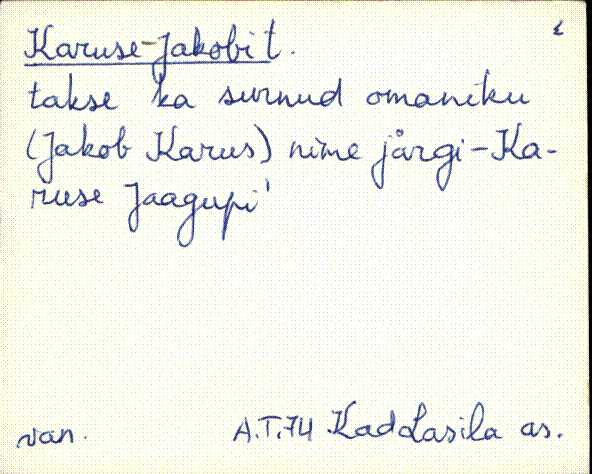 Karuse-Jakobi t.
takse ka surnud omaniku
(Jakob Karus) nime järgi-Ka-
ruse Jaagupi'
van. A.T.74 Kad Lasila as.